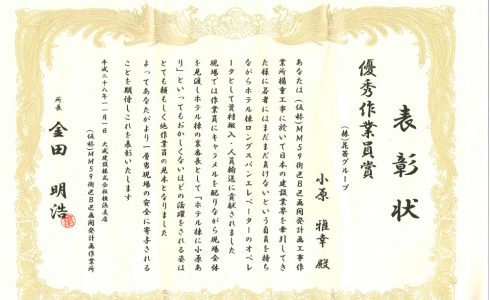 表彰状
優秀作業員賞
(株)花菱グループ
小原 雅幸 殿
あなたは(仮称)MM59街区B区画開発計画工事作
業所揚重工事に於いて日本の建設業界を牽引してき
た様に若者にはまだまだ負けないという自負を持ち
ながらホテル棟ロングスパンエレベーターのオペレ
ータとして資材搬入・人員輸送に貢献されました
現場では作業員にキャラメルを配りながら現場全体
を見渡しホテル棟の裏番長として「ホテル棟に小原あ
り」といってもおかしくないほどの活躍をされる姿は
とても頼もしく他作業員の見本となりました
よってあなたがより一層当現場の安全に寄与される
ことを期待しこれを表彰いたします
平成二十八年十一月一日 大成建設株式会社横浜支店
(仮称)MM59街区B区画開発計画作業所
所長 金田 明浩